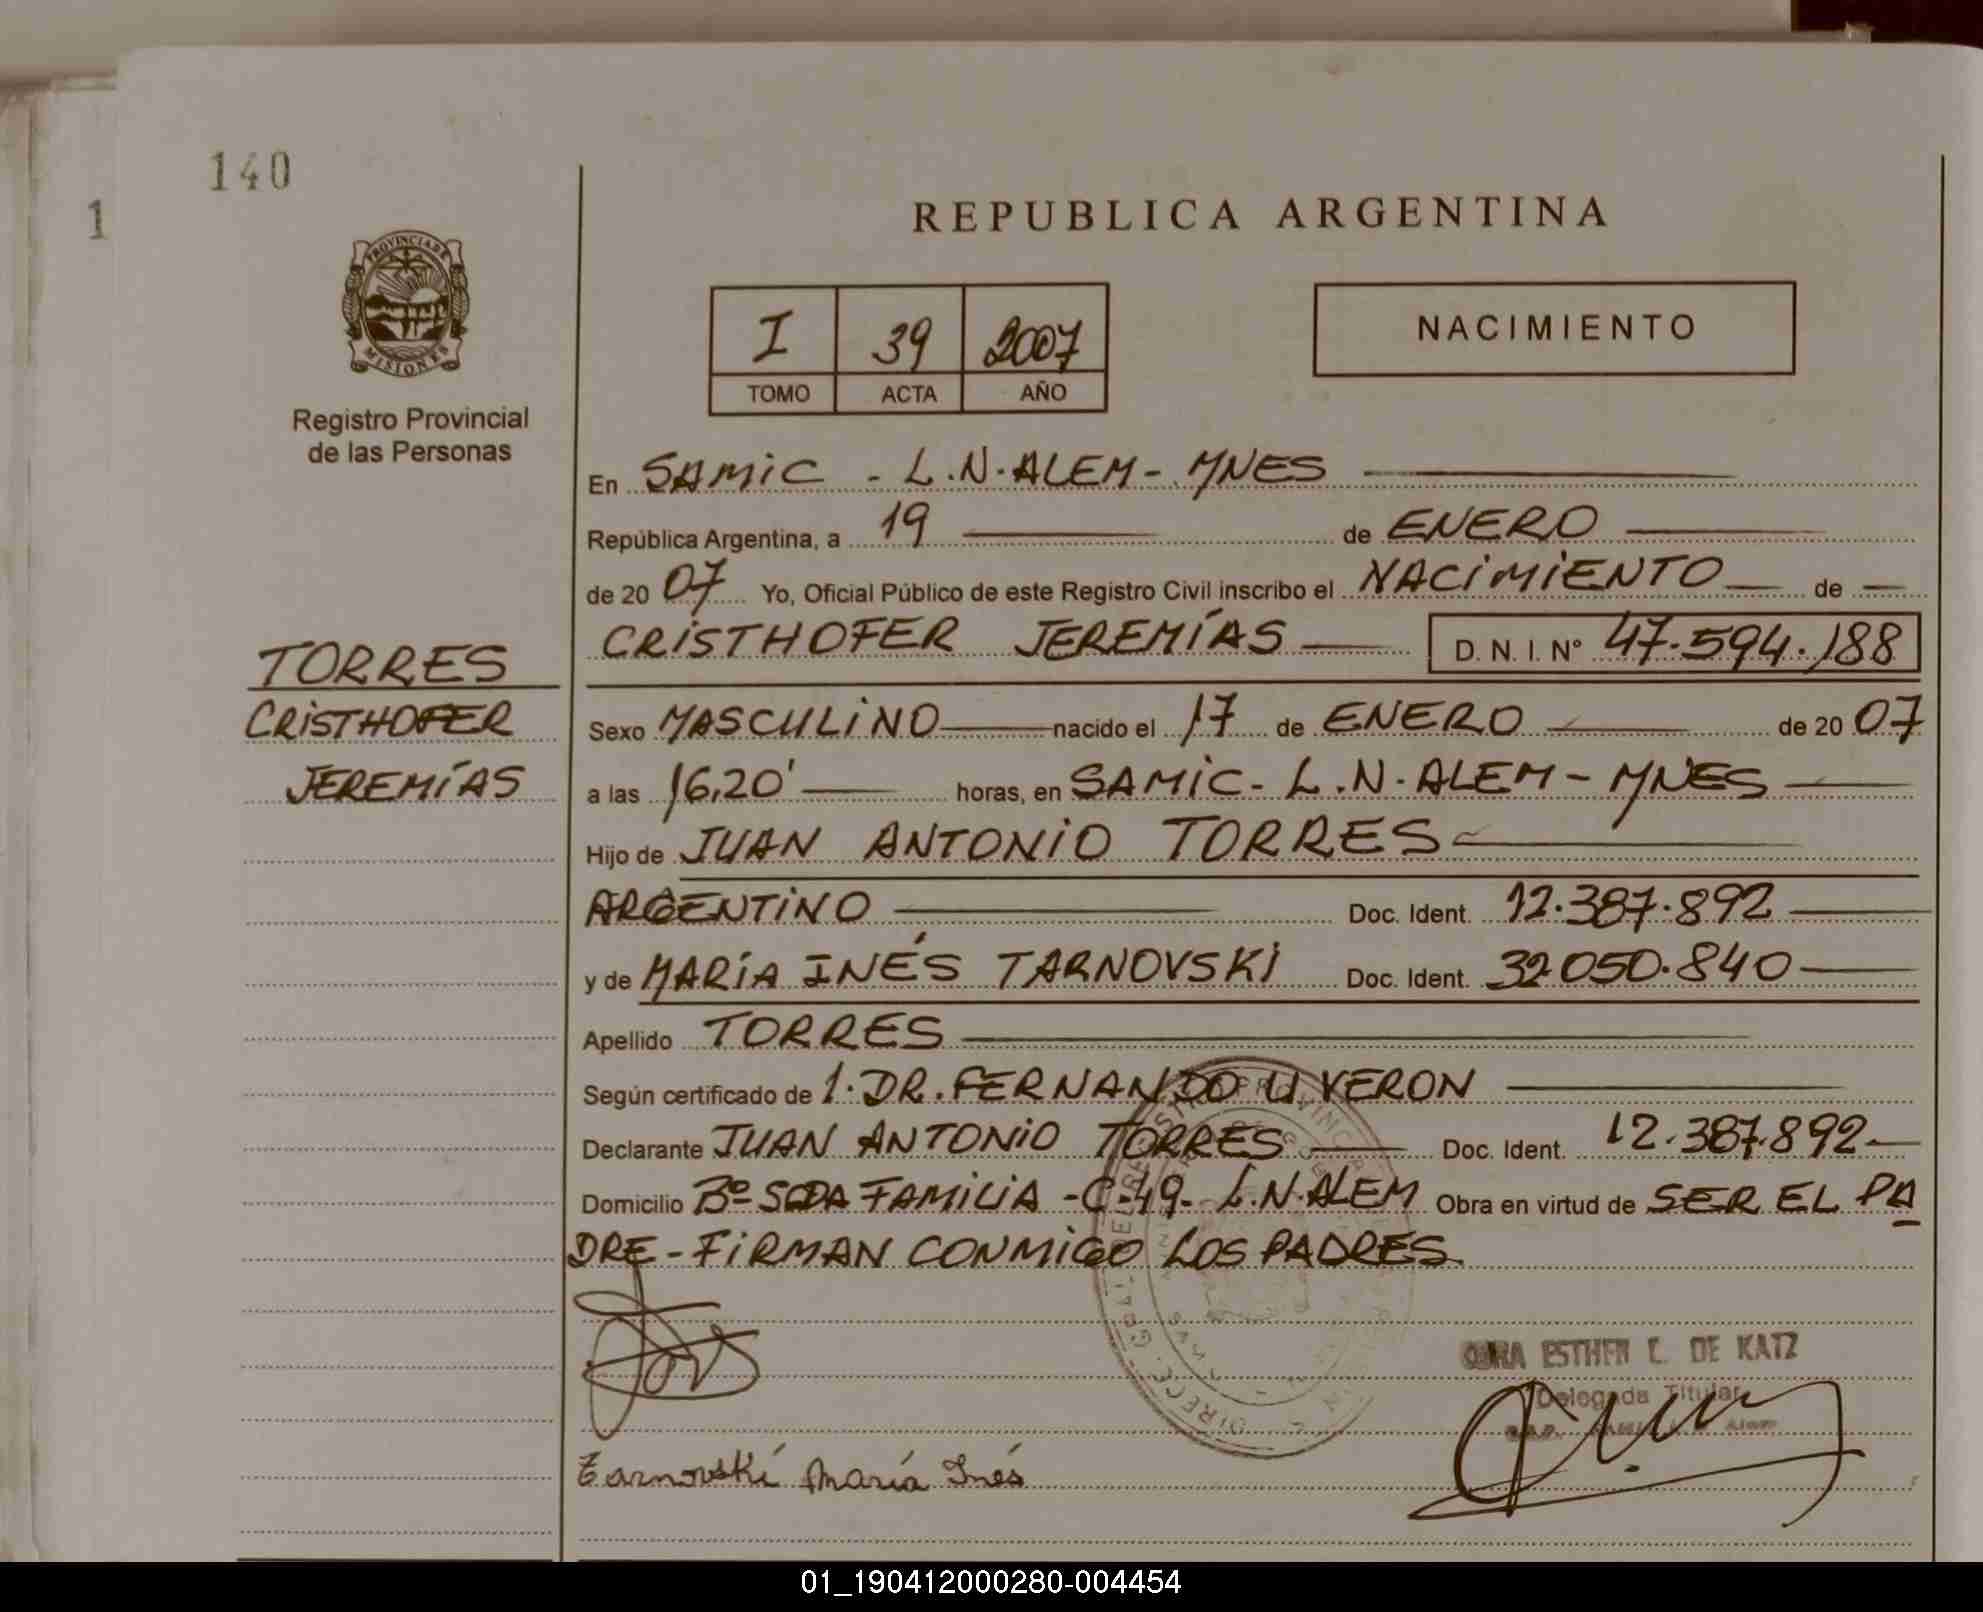 140
1
REPUBLICA ARGENTINA
PROVINCIA DE
MISIONES
Registro Provincial
de las Personas
I 39 2007
TOMO ACTA AÑO
NACIMIENTO
En SAMIC - L.N. ALEM - MNES
República Argentina, a 19 de ENERO
de 2007 Yo, Oficial Público de este Registro Civil inscribo el NACIMIENTO de
CRISTHOFER JEREMÍAS D. N. I. Nº 47.594.188
TORRES
CRISTHOFER
JEREMÍAS
Sexo MASCULINO nacido el 17 de ENERO de 2007
a las 16,20' horas, en SAMIC - L.N. ALEM - MNES
Hijo de JUAN ANTONIO TORRES
ARGENTINO Doc. Ident. 12.387.892
y de MARÍA INÉS TARNOVSKI Doc. Ident. 32.050.840
Apellido TORRES
Según certificado de 1. DR. FERNANDO U VERON
Declarante JUAN ANTONIO TORRES Doc. Ident. 12.387.892
Domicilio Bº SGDA FAMILIA - C-49- L.N. ALEM Obra en virtud de SER EL PA
DRE - FIRMAN CONMIGO LOS PADRES
ESTHER C. DE KATZ
Delegada Titular
Tarnovski María Inés
01_190412000280-004454